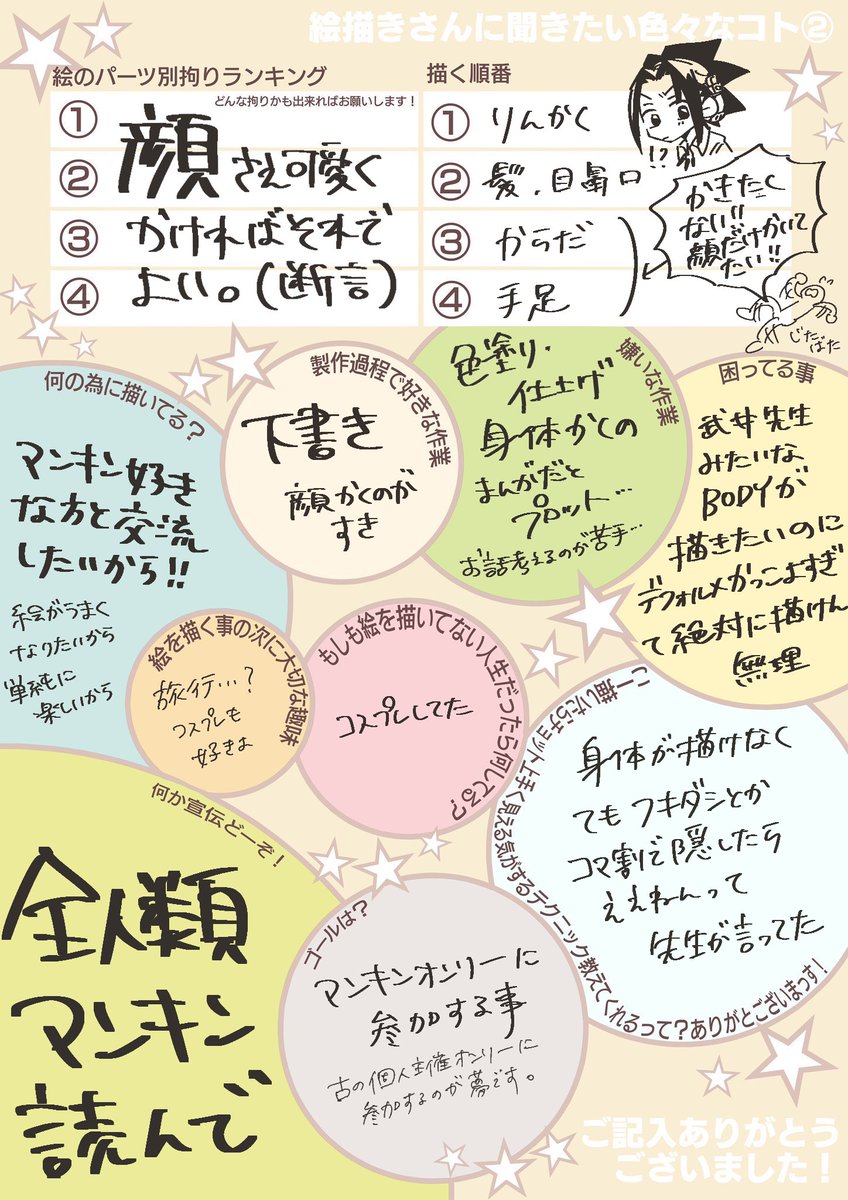 絵描きさんに聞きたい色々なコト②
絵のパーツ別拘りランキング
どんな拘りかも出来ればお願いします！
①
②
③
④
顔さえ可愛く
かければそれで
よい。(断言)
描く順番
① りんかく
② 髪、目鼻口
③ からだ
④ 手足
!?
かきたく
ない!!
顔だけかいて
たい!!
じたばた
何の為に描いてる？
マンキン好き
な方と交流
したいから!!
絵がうまく
なりたいから
単純に
楽しいから
製作過程で好きな作業
下書き
顔かくのが
すき
嫌いな作業
色塗り・
仕上げ
身体かくの
まんがだと
プロット…
お話考えるのが苦手…
困ってる事
武井先生
みたいな
BODYが
描きたいのに
デフォルメがかっこよすぎ
て絶対に描けん
無理
絵を描く事の次に大切な趣味
旅行…？
コスプレも
好きよ
もしも絵を描いてない人生だったら何してる？
コスプレしてた
こー描いたらチョット上手く見える気がするテクニック教えてくれるって？ありがとございまっす！
身体が描けなく
てもフキダシとか
コマ割で隠したら
ええねんって
先生が言ってた
何か宣伝どーぞ！
全人類
マンキン
読んで
ゴールは？
マンキンオンリーに
参加する事
古の個人主催オンリーに
参加するのが夢です。
ご記入ありがとう
ございました！